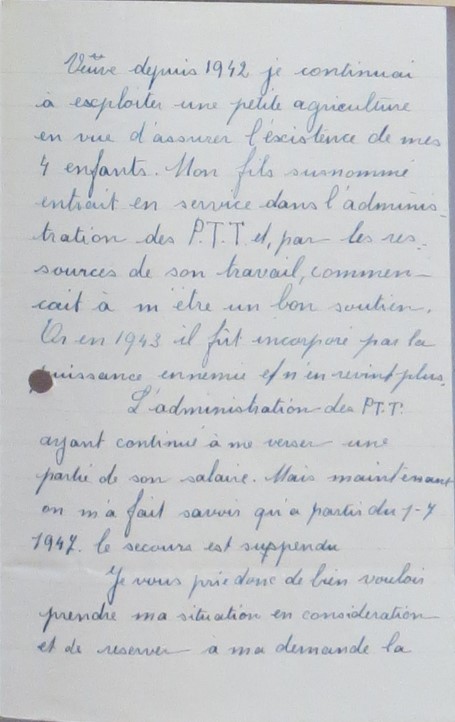 Veuve depuis 1942 je continuai
à exploiter une petite agriculture
en vue d'assurer l'éxistence de mes
4 enfants. Mon fils surnommé
entrait en service dans l'adminis-
tration des P.T.T et, par les res-
sources de son travail, commen-
cait à m'être un bon soutien.
Or en 1943 il fût incorporé par la
puissance ennemie et n'en revint plus.
L'administration des P.T.T.
ayant continué à me verser une
partie de son salaire. Mais maintenant
on m'a fait savoir qu'a partir du 1-7
1947. le secours est suspendu
Je vous prie donc de bien vouloir
prendre ma situation en considération
et de reserver à ma demande la